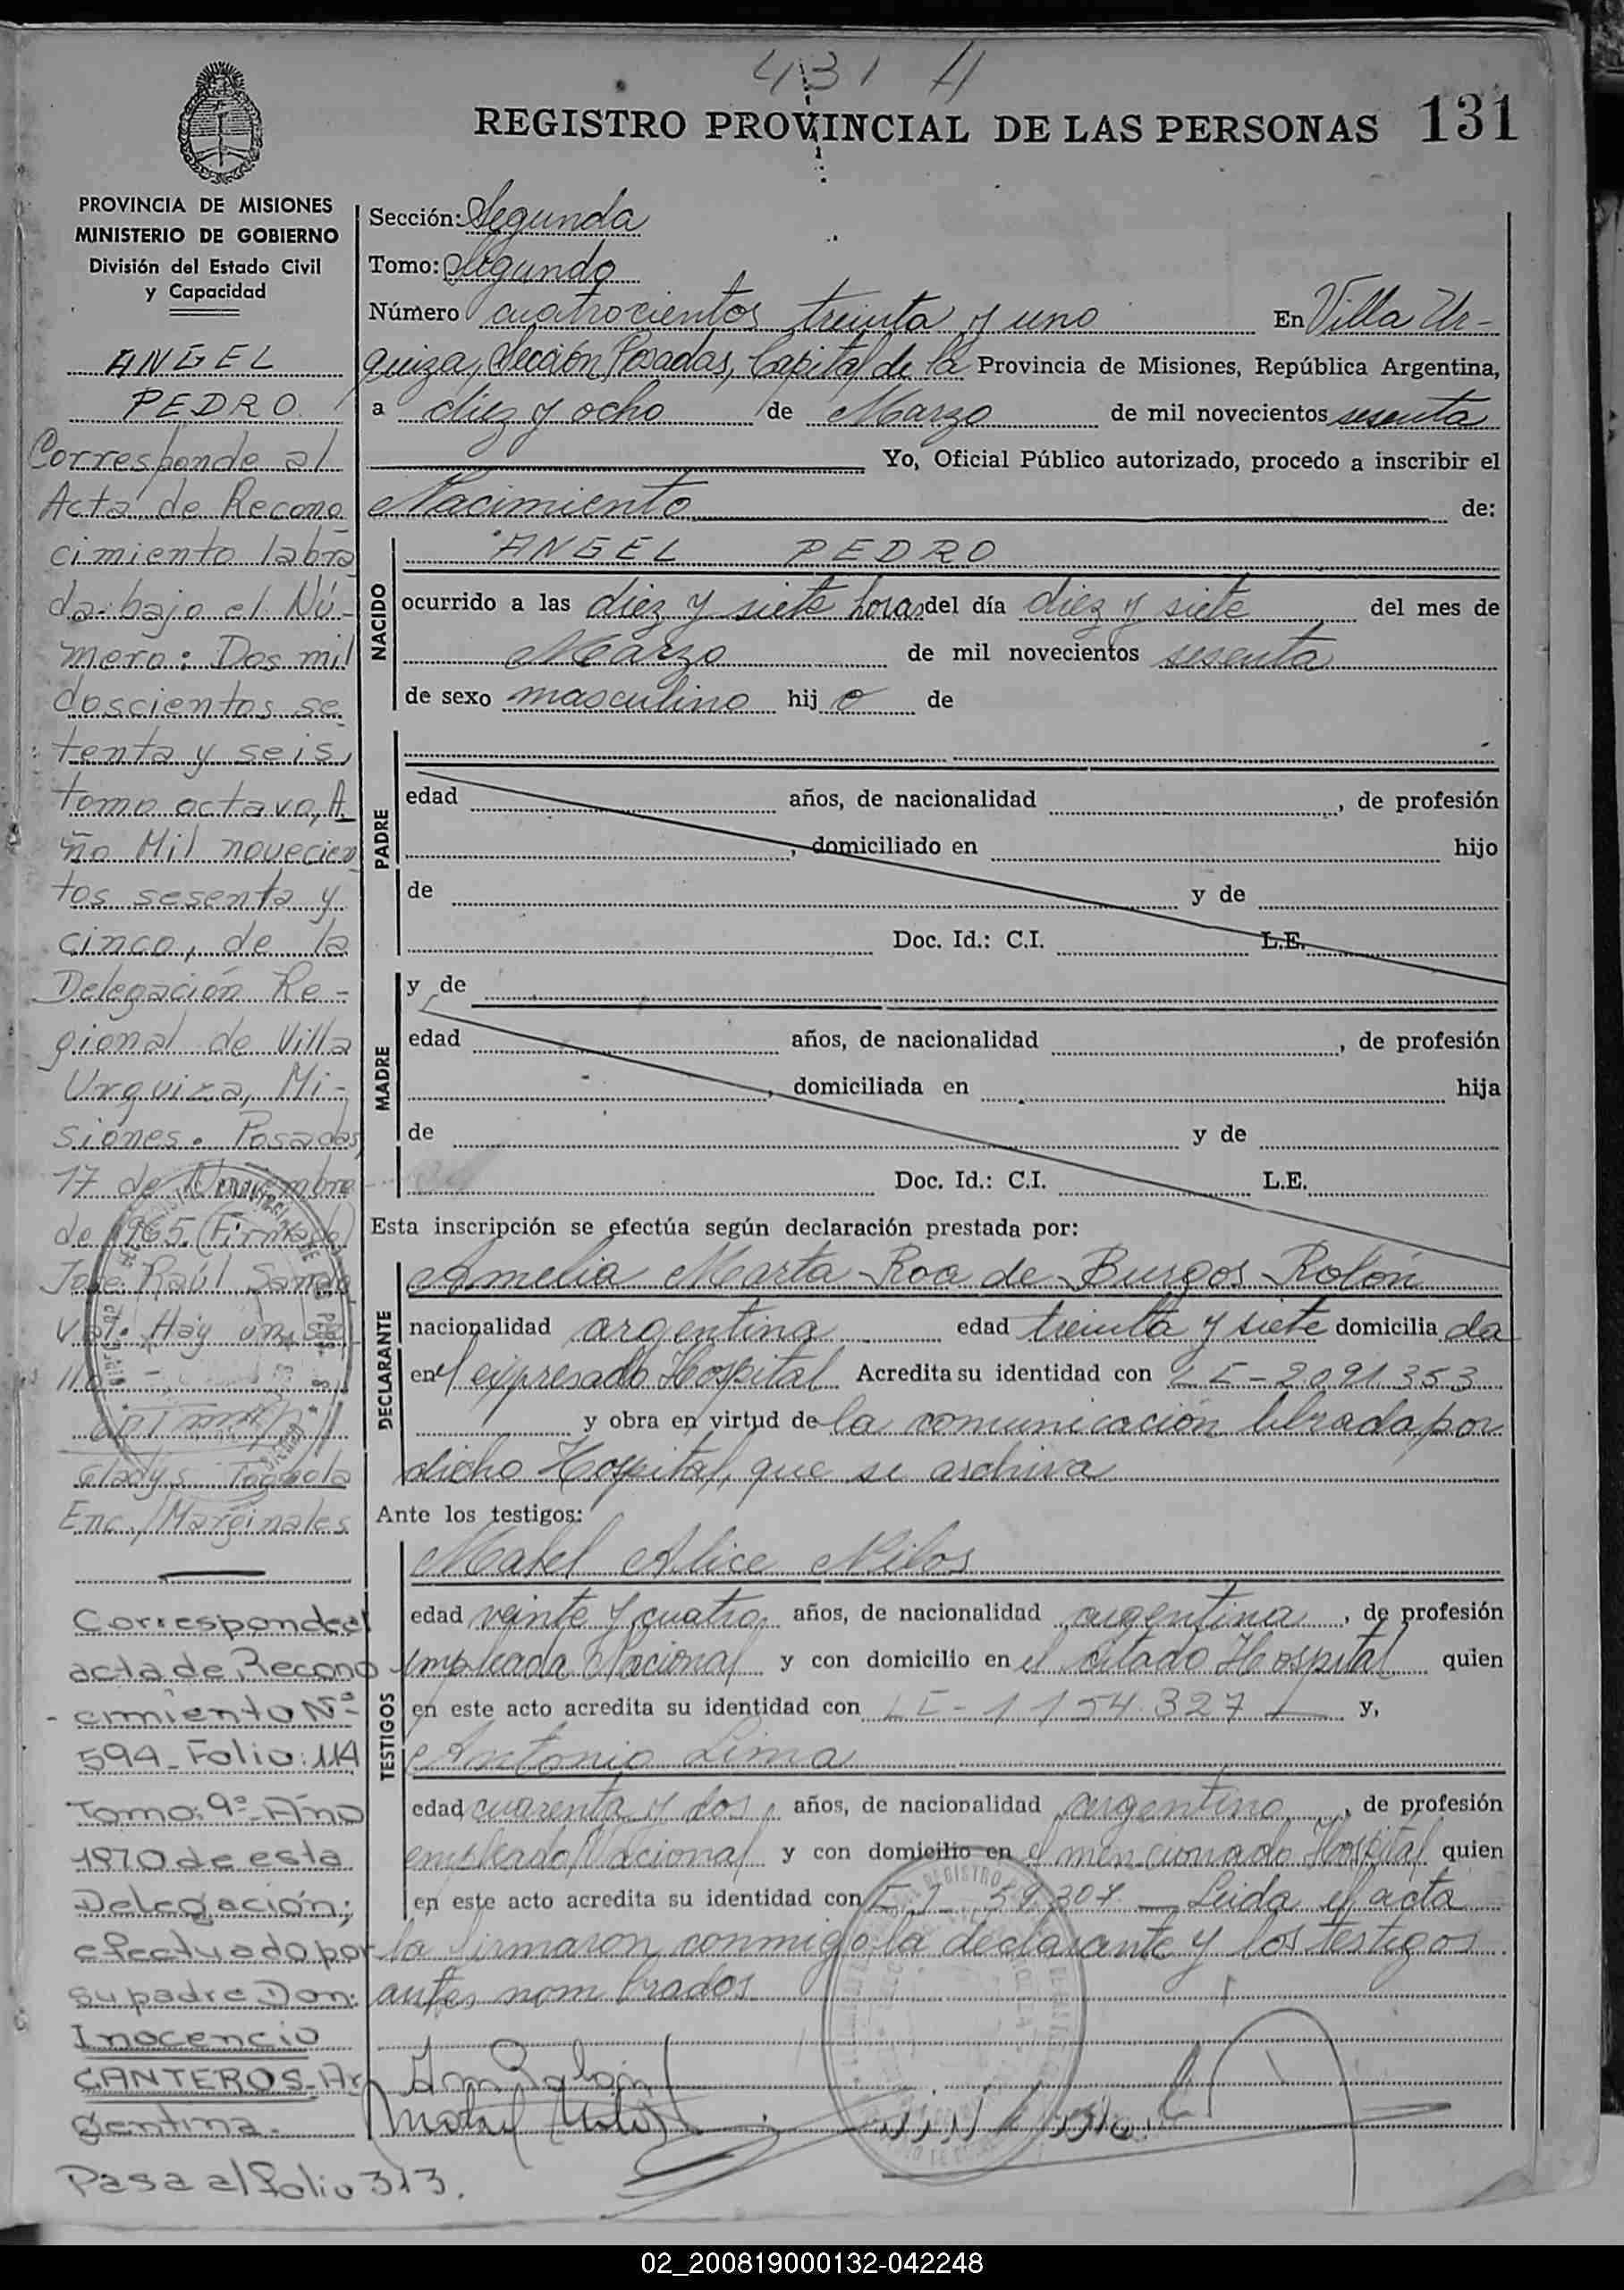 431 A
REGISTRO PROVINCIAL DE LAS PERSONAS 131
PROVINCIA DE MISIONES
MINISTERIO DE GOBIERNO
División del Estado Civil
y Capacidad
ANGEL
PEDRO
Corresponde al
Acta de Recono
cimiento labra
da bajo el Nú-
mero: Dos mil
doscientos se
tenta y seis,
tomo octavo, A
ño Mil novecien
tos sesenta y
cinco, de la
Delegación Re-
gional de Villa
Urquiza, Mi-
siones. Posadas,
17 de Noviembre
de 1965. (Firmado)
José Raúl
Hay un se
llo
Gladys
Enc. Marginales
Corresponde al
acta de Recono
cimiento Nº
594 - Folio: 114
Tomo: 9º - Año
1970 de esta
Delegación;
efectuado por
su padre Don:
Inocencio
CANTEROS - Ar
gentina.
Pasa al folio 313.
Sección: Segunda
Tomo: Segundo
Número cuatrocientos treinta y uno En Villa Ur-
quiza, Sección Posadas, Capital de la Provincia de Misiones, República Argentina,
a diez y ocho de Marzo de mil novecientos sesenta
Yo, Oficial Público autorizado, procedo a inscribir el
Nacimiento de:
NACIDO
ANGEL PEDRO
ocurrido a las diez y siete horas del día diez y siete del mes de
Marzo de mil novecientos sesenta
de sexo masculino hijo de
PADRE
edad años, de nacionalidad , de profesión
, domiciliado en hijo
de y de
Doc. Id.: C.I. L.E.
MADRE
y de
edad años, de nacionalidad , de profesión
, domiciliada en hija
de y de
Doc. Id.: C.I. L.E.
Esta inscripción se efectúa según declaración prestada por:
DECLARANTE
Amelia Marta Roa de Burgos Rolón
nacionalidad argentina edad treinta y siete domiciliada
en el expresado Hospital Acredita su identidad con LE-2091.353
y obra en virtud de la comunicación librada por
dicho Hospital, que se archiva
Ante los testigos:
TESTIGOS
Mabel Alice Nilos
edad veinte y cuatro años, de nacionalidad argentina, de profesión
empleada Nacional y con domicilio en el citado Hospital quien
en este acto acredita su identidad con LE-1.154.327 y,
Antonio Lima
edad cuarenta y dos, años, de nacionalidad argentino, de profesión
empleado Nacional y con domicilio en el mencionado Hospital quien
en este acto acredita su identidad con Leida el acta
la firmaron conmigo la declarante y los testigos
antes nombrados
02_200819000132-042248